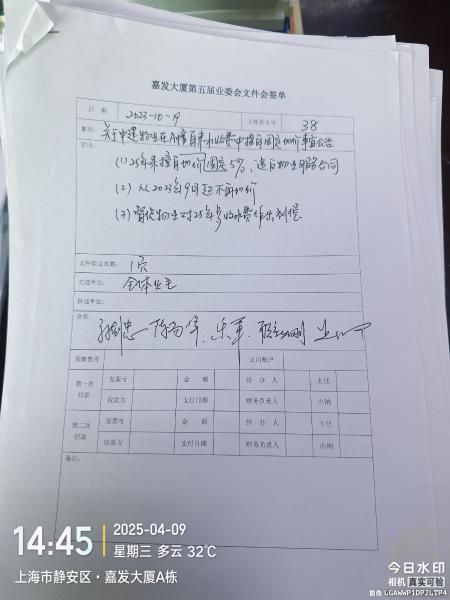 嘉发大厦第五届业委会文件会签单
日 期 2023-10-19 文件流水号 38
事项: 关于中建物业在A幢自来水收费中擅自固定加价事宜公告
(1) 25年来擅自加价固定5%, 违反物业服务合同
(2) 从2023年9月起不再加价
(3) 督促物业对25年多收水费作出补偿
文件原文页数: 1页
主送单位: 全体业主
抄送单位:
会签:
预算费用 支出账户
第一次付款 发票号 金 额 经 办 人 主任
收款方 支付日期 财务负责人 出纳
第二次付款 发票号 金 额 经 办 人 主任
收款方 支付日期 财务负责人 出纳
备注:
14:45 2025-04-09
星期三 多云 32℃
上海市静安区·嘉发大厦A栋
今日水印
相机 真实可验
防伪 LGAWWP1DP2LTP4